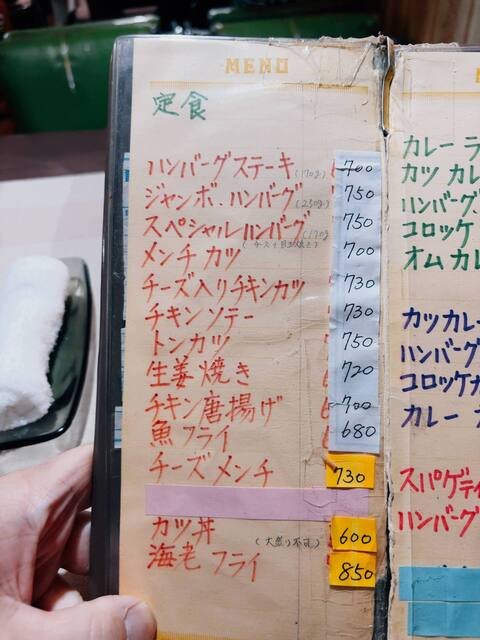 MENU
定食
ハンバーグステーキ(170g) 700
ジャンボ.ハンバーグ(250g) 750
スペシャルハンバグ(170g) 750
メンチカツ 700
チーズ入りチキンカツ 730
チキンソテー 730
トンカツ 750
生姜焼き 720
チキン唐揚げ 700
魚フライ 680
チーズメンチ 730
カツ丼(大盛り不可) 600
海老フライ 850
カレーラ
カツカレ
ハンバーグ
コロッケ
オムカレ
カツカレー
ハンバーグ
コロッケカ
カレー
スパゲティ
ハンバーグ